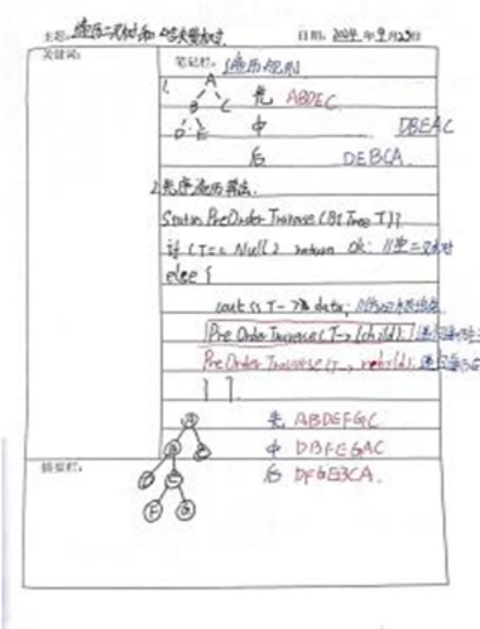 主题: 遍历二叉树和哈夫曼树 日期: 2024 年 9 月 23日
关键词: 笔记栏: 遍历规则
1. A
B C 先 ABDEC
D E 中 DBEAC
后 DEBCA.
2.先序遍历算法.
Status PreOrder Traverse (BiTree T){
if (T== Null) return ok; //空二叉树
else {
cout << T-> data;
PreOrder Traverse(T-> lchild);
PreOrder Traverse(T-> rchild);
} }
A 先 ABDEFGC
B C 中 DBFEGAC
摘要栏: D E 后 DFGEBCA.
F G